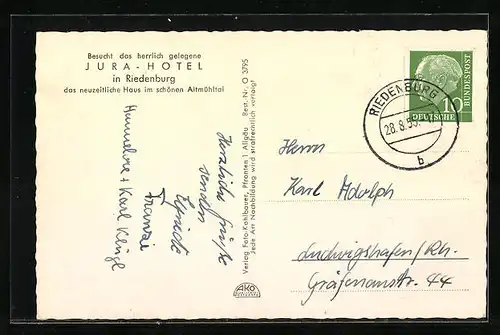 Besucht das herrlich gelegene
JURA-HOTEL
in Riedenburg
das neuzeitliche Haus im schönen Altmühltal
Herzliche Grüße
senden
Franzi
Hannelore + Karl
Verlag Foto-Kohlbauer, Pfronten 1 Allgäu Best. Nr. O 3795
Jede Art Nachbildung wird strafrechtlich verfolgt
AKO
RIEDENBURG
28.8.55
b
10
DEUTSCHE
BUNDESPOST
Herrn
Karl Adolph
Ludwigshafen/Rh.
Gräfenaustr. 44